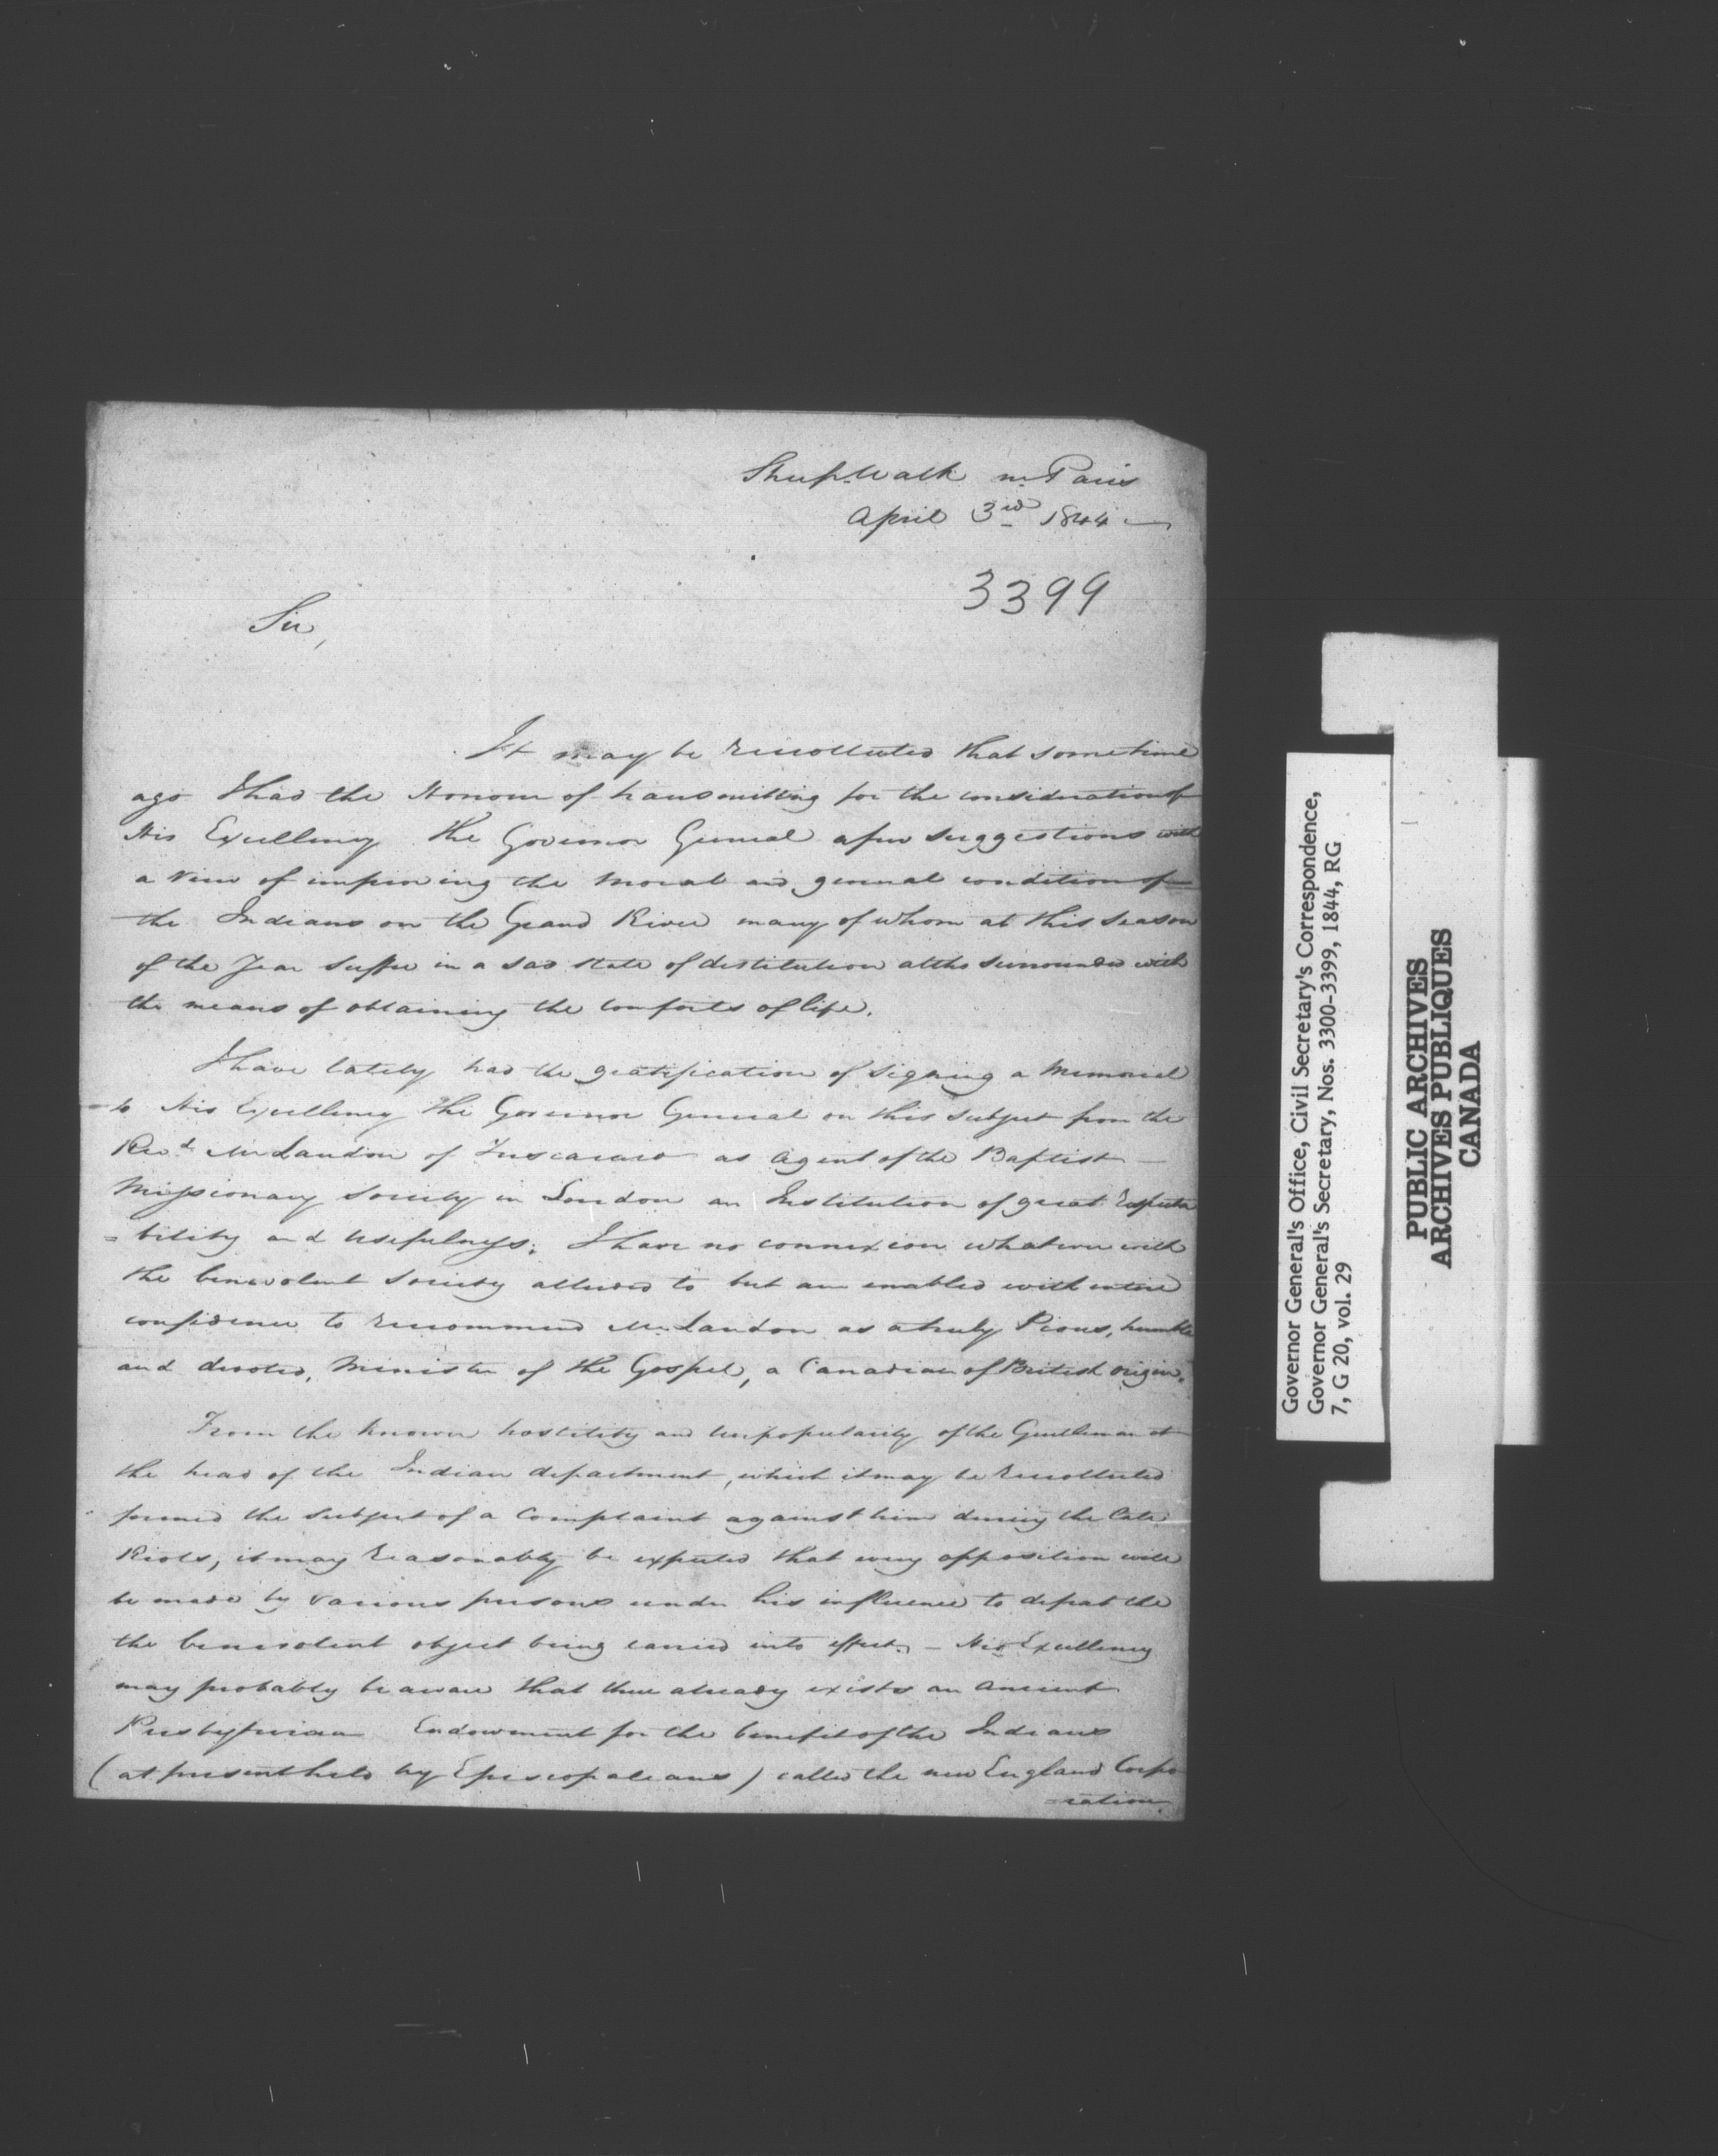 Sheep-Walk nr. Paris
April 3rd 1844
3399
Sir,
It may be recollected that sometime
ago I had the Honour of transmitting for the consideration of
His Excellency the Governor General a few suggestions with
a view of improving the moral and general condition of
the Indians on the Grand River many of whom at this season
of the Year suffer in a sad state of destitution altho surrounded with
the means of obtaining the comforts of life.
I have lately had the gratification of signing a Memorial
to His Excellency the Governor General on this subject from the
Revd. Mr Landon of Tuscarora as agent of the Baptist
Missionary Society in London an Institution of great respecta
=bility and usefulness; I have no connexion whatever with
the benevolent Society alluded to but am enabled with entire
confidence to recommend Mr. Landon as a truly Pious, humble
and devoted, Minister of the Gospel, a Canadian of British origin.
From the known hostility and unpopularity of the Gentleman at
the head of the Indian department, which it may be recollected
formed the subject of a Complaint against him during the late
Riots, it may reasonably be expected that every opposition will
be made by various persons under his influence to defeat the
the benevolent object being carried into effect. - His Excellency
may probably be aware that there already exists an Ancient
Presbyterian Endowment for the benefit of the Indians
(at present held by Episcopaleans) called the new England Corpo
=ration
Governor General's Office, Civil Secretary's Correspondence,
Governor General's Secretary, Nos. 3300-3399, 1844, RG
7, G 20, vol. 29
PUBLIC ARCHIVES
ARCHIVES PUBLIQUES
CANADA